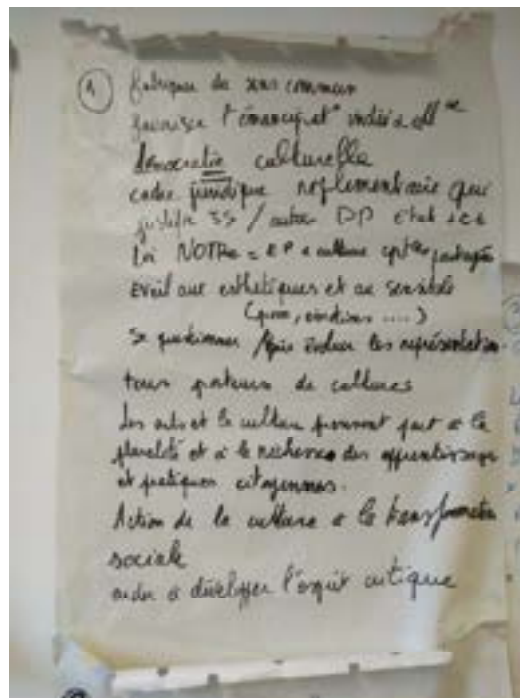 ① fabrique de sens commun
favoriser l'émancipat° indiv & coll
démocratie culturelle
cadre juridique reglementaire qui
justifie SS / autres DP etat
Loi NOTRe = EP & culture cptces partagées
Eveil aux esthétiques et au sensible
(, émotions ....)
Se questionner / faire évoluer les représentation
tous porteurs de cultures
Les arts et la culture prennent part à la
pluralité et à la richesse des apprentissages
et pratiques citoyennes.
Action de la culture à la transformation
sociale
aider à développer l'esprit critique